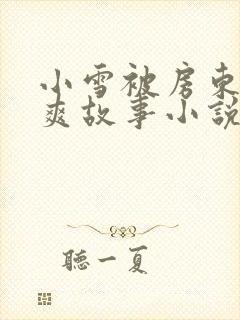 小雪被房東
爽故事小説
聽一夏